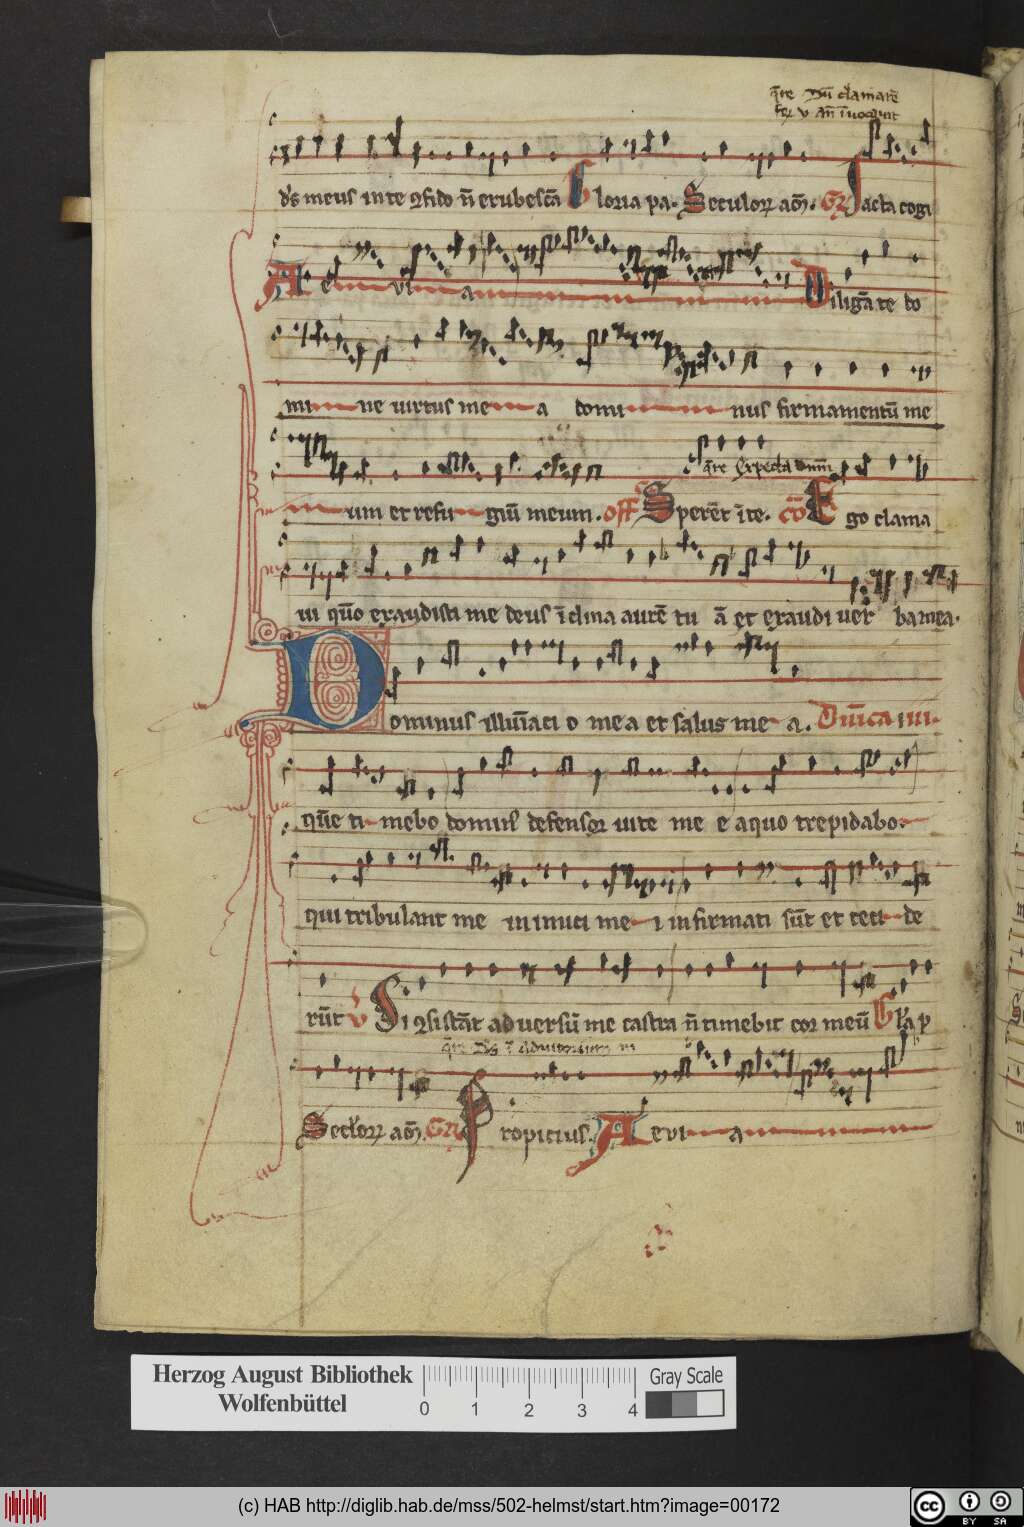 q̄re Dū clamarē
ds meus in te ꝯfido n̄ erubescā Gloria pa. Seculoꝝ am̄. GR Iacta cogi
Ae vi a Diligā te do
mi ne uirtus me a domi nus firmamentū me
q̄re Expecta dnm̄
um et refu giū meum. off Sperēt ī te. cō Ego clama
ui qm̄o exaudisti me deus īclina aurē tu ā et exaudi uer ba mea.
Dominus illuīatio mea et salus me a. Dn̄ica iiii.
quē ti mebo dominus defensor uite me e a quo trepidabo.
qui tribulant me inimici me i infirmati sūt et ceci de
rūt V Si ꝯsistāt aduersū me castra n̄ timebit cor meū Gl'a p
Secl'oꝝ am̄. GR Propicius. Ae vi a
Herzog August Bibliothek
Wolfenbüttel
0 1 2 3 4
Gray Scale
(c) HAB http://diglib.hab.de/mss/502-helmst/start.htm?image=00172
cc BY SA